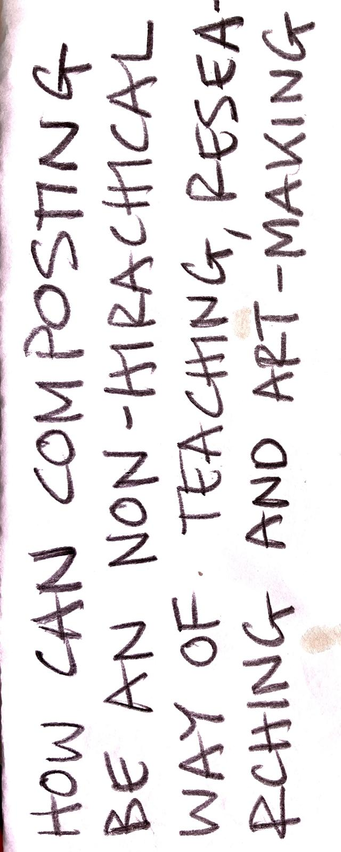 HOW CAN COMPOSTING
BE AN NON-HIRACHICAL
WAY OF. TEACHING, RESEA-
RCHING AND ART-MAKING